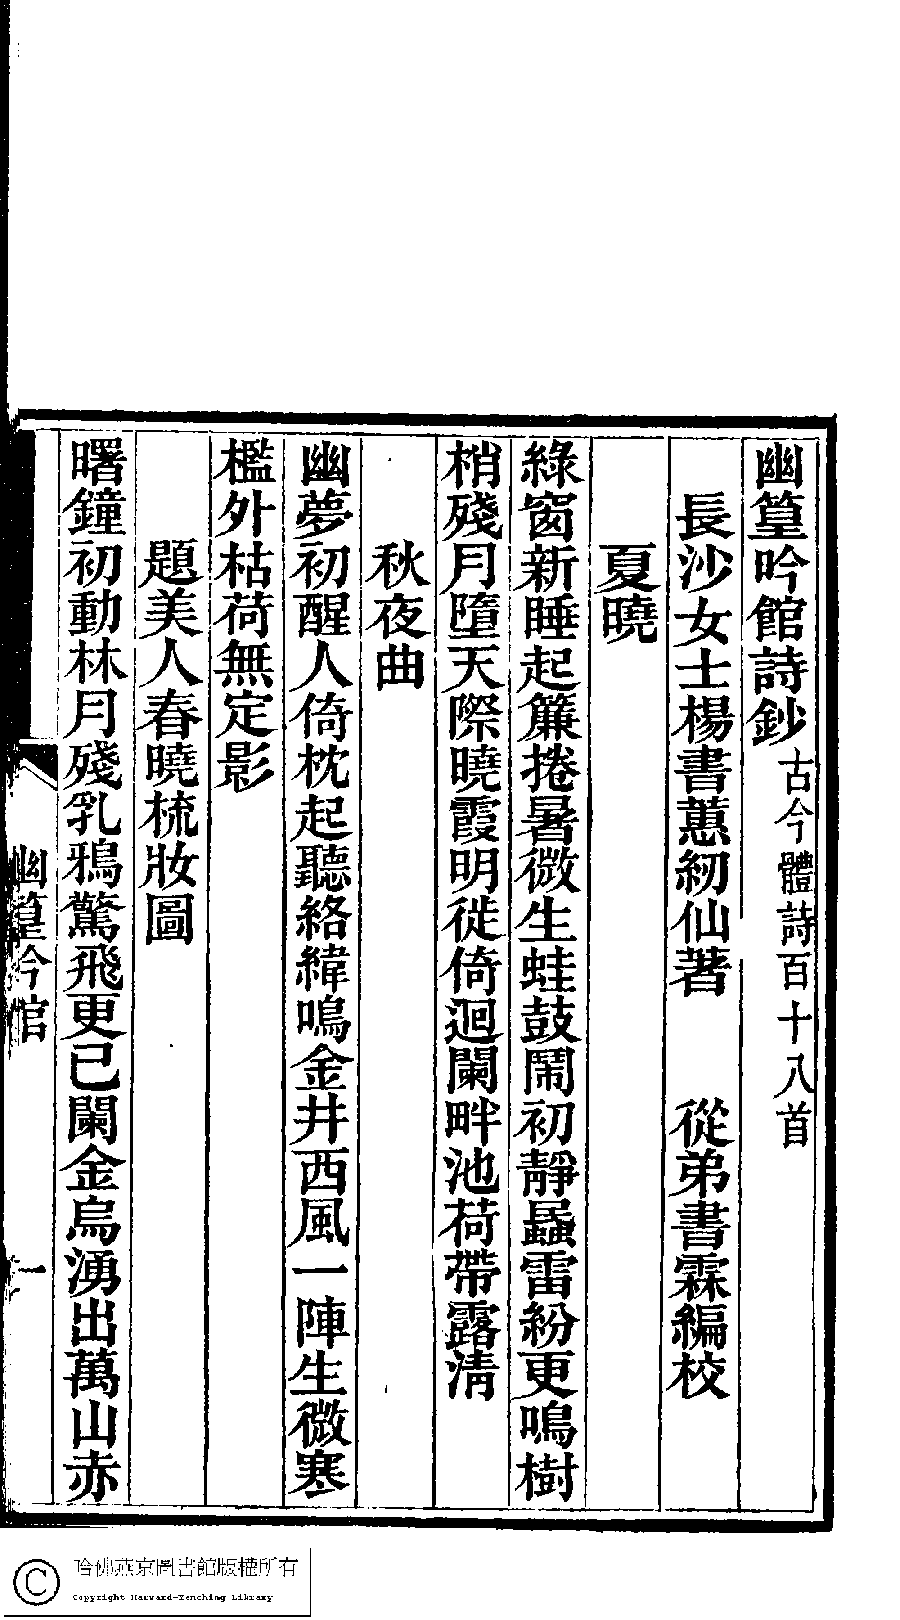 幽篁吟館詩鈔古今體詩百十八首
長沙女士楊書蕙紉仙著　從弟書霖編校
夏曉
綠窗新睡起簾捲暑微生蛙鼓鬧初靜蟁雷紛更鳴樹
梢殘月墮天際曉霞明徙倚迴闌畔池荷帶露淸
秋夜曲
幽夢初醒人倚枕起聽絡緯鳴金井西風一陣生微寒
檻外枯荷無定影
題美人春曉梳妝圖
曙鐘初動林月殘乳鴉驚飛更已闌金烏湧出萬山赤
幽篁吟館
一
哈佛燕京圖書館版權所有
Copyright Harvard-Yenching Library